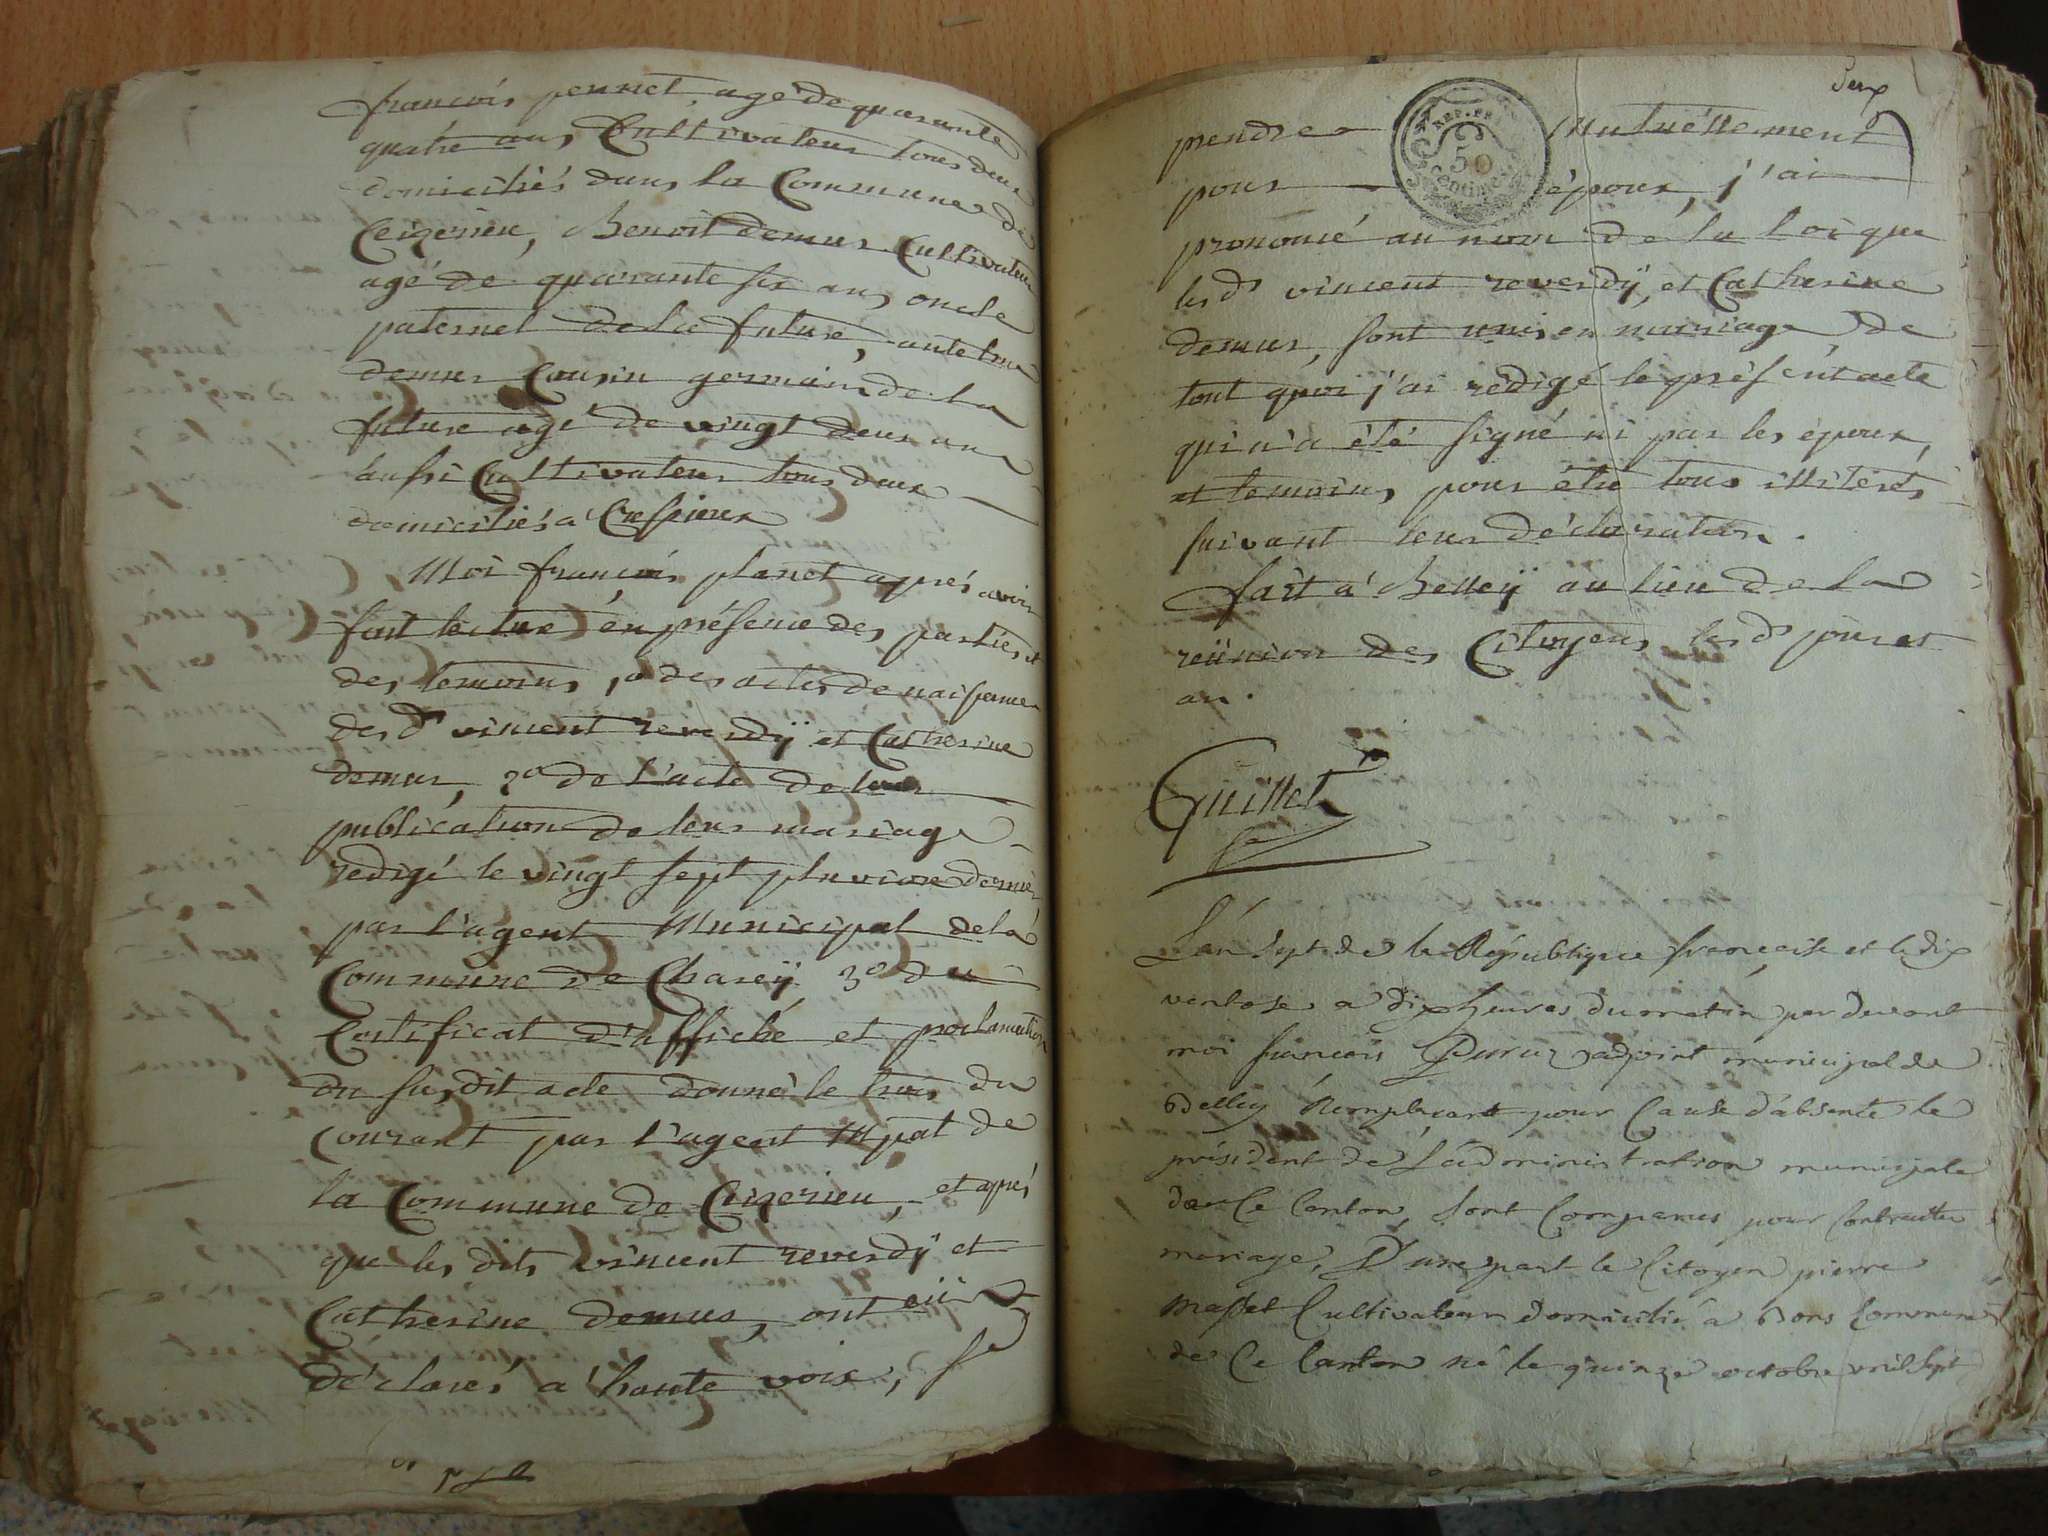 francois pernet, agé de quarante
quatre ans, Cultivateur tous deux
domiciliés dans la Commune de
Ceizerieu, Benoit demur Cultivateur
agé de quarante six ans oncle
paternel de la future, anthelme
demur Cousin germain de la
future agé de vingt deux ans
aussi Cultivateur tous deux
domiciliés a Cressieux
Moi françois planet aprés avoir
fait lecture en présence des parties et
des temoins, 1o des actes de naissance
des dts vincent reverdÿ et Catherine
demur, 2o de l'acte de
publication de leur mariage
redigé le vingt sept pluviose dernier
par l'agent Municipal de la
Commune de Chareÿ 3o du
Certificat d'affiche et proclamation
du susdit acte donné le trois du
courant par l'agent Mpal de
la Commune de Ceizerieu, et aprés
que les dits vincent reverdÿ et
Catherine demur, ont eü
déclarés a haute voix, se
Deux
prendre Mutuéllement
REP. FR.
50
centimes
pour époux, j'ai
prononcé au nom de la loi que
les dts vincent reverdÿ, et Catherine
demur, sont unis en mariage, de
tout quoi j'ai rédigé le présent acte
qui n'a été signé ni par les époux,
et temoins, pour étre tous illiterés
suivant leur déclaration.
fait a Belleÿ au lieu de la
reünion des Citoyens les dts jour et
an.
Guillet
L'an sept de la République française et le dix
ventose a dix heures du matin par devant
moi francois adjoint municipal de
Belley Remplaçant pour Cause d'absence le
président de L'administration municipale
de Ce Canton, Sont Comparus pour Contracter
mariage, D'une part le Citoyen pierre
Masset Cultivateur domicilié a Bons Commune
de Ce Canton né le quinze octobre mil sept